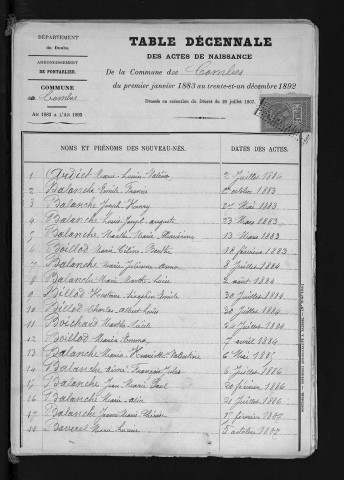 DÉPARTEMENT
du Doubs.
ARRONDISSEMENT
DE PONTARLIER
COMMUNE
des Combes
AN 1883 A L'AN 1892
TABLE DÉCENNALE
DES ACTES DE NAISSANCE
De la Commune des Combes
du premier janvier 1883 au trente-et-un décembre 1892
Dressée en exécution du Décret du 20 juillet 1807.
NOMS ET PRÉNOMS DES NOUVEAU-NÉS.
DATES DES ACTES.
1 Marie Louise 2 Juillet 1884
2 Balanche Emile Francis octobre 1883
3 Balanche Joseph Henry 24 Mai 1883
4 Balanche Louis Joseph auguste 23 Mars 1883
5 Balanche Marthe Marie 13 Mars 1883
6 Boillod Marie Céline Berthe 18 février 1883
7 Balanche Marie Julienne Anna 8 Juillet 1884
8 Balanche Marie Marthe Lucie 2 août 1884
9 Billod 30 Juillet 1884
10 Billod Charles albert Louis 30 Juillet 1884
11 Boichard Marthe Lucie 24 Juillet 1884
12 Boillod Maria Emma 7 avril 1884
13 Balanche Maria Henriette Valentine 6 Mai 1885
14 Balanche aimé François Jules 6 Juillet 1886
15 Balanche Jean Marie Paul 20 février 1886
16 Balanche Marie 21 Juillet 1886
17 Balanche Jeanne Marie 17 février 1887
18 Baverel Marie Lucine 5 octobre 1887